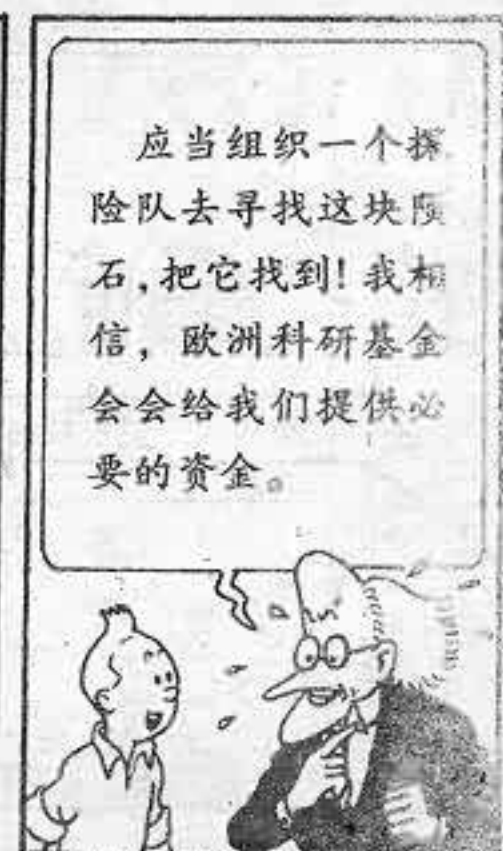 应当组织一个探
险队去寻找这块陨
石,把它找到!我相
信，欧洲科研基金
会会给我们提供必
要的资金。